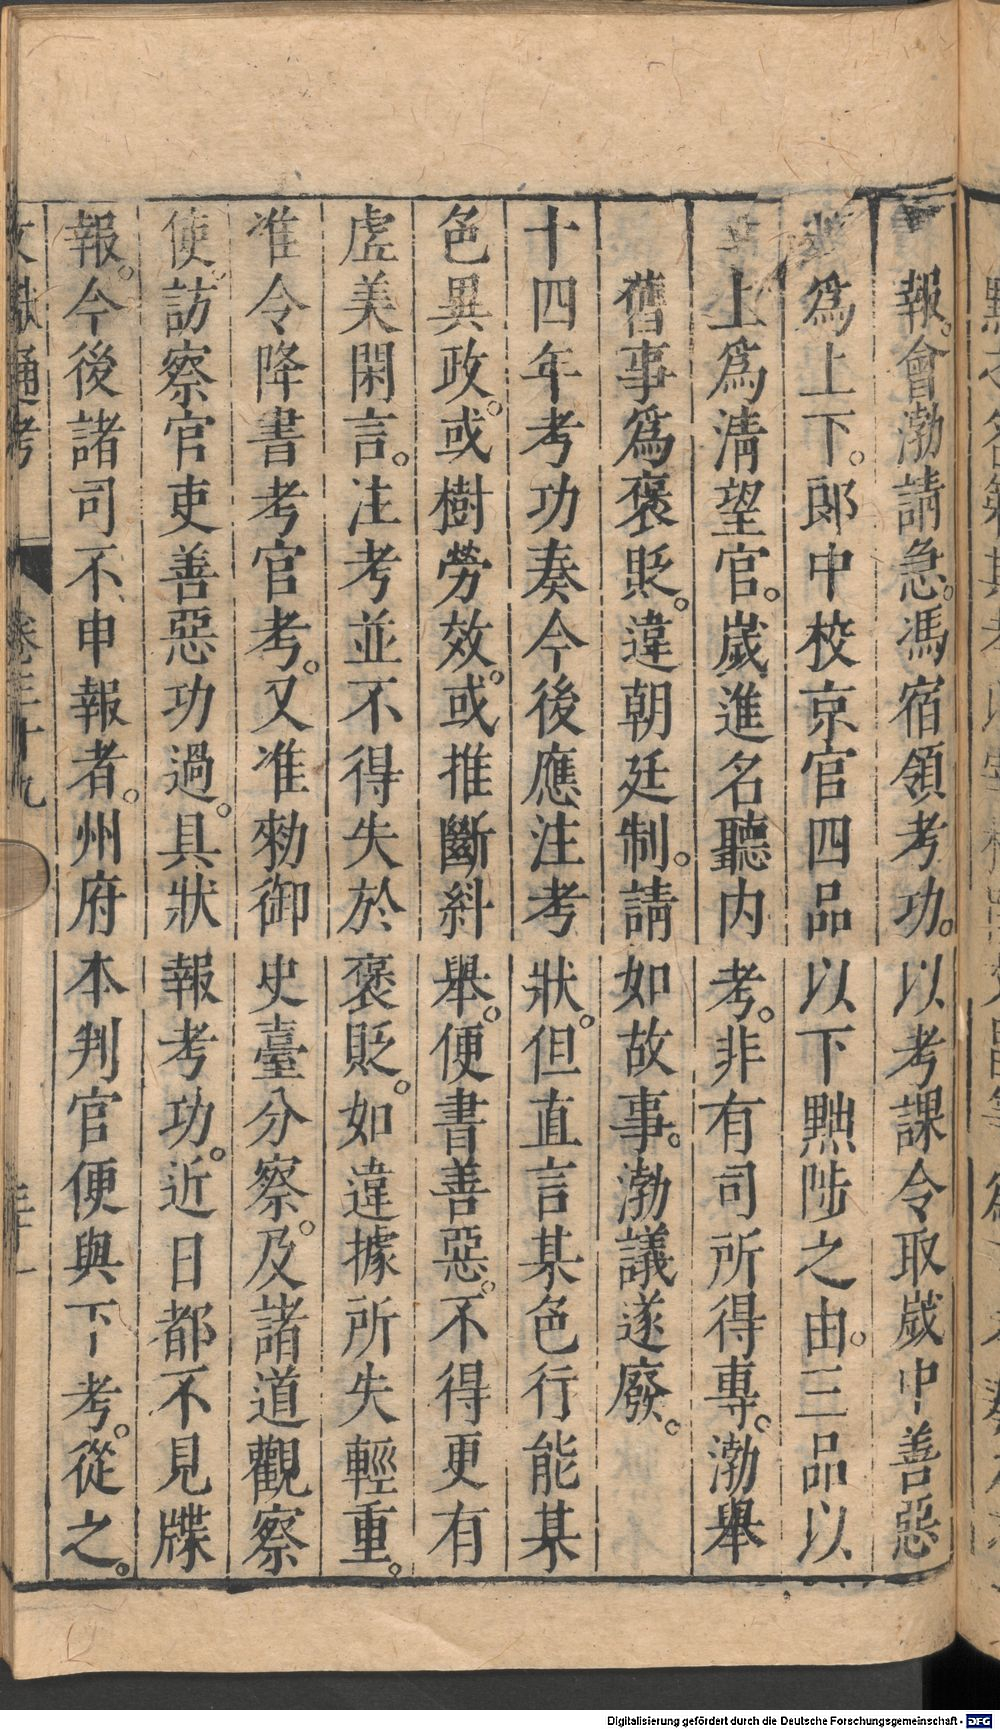 報。會渤請急。馮宿領考功。以考課令取歲中善惡
爲上下。郎中校京官四品以下黜陟之由。三品以
上爲淸望官。歲進名聽內考。非有司所得專。渤舉
舊事爲褒貶。違朝廷制。請如故事。渤議遂廢。
十四年考功奏今後應注考狀。但直言某色行能某
色異政。或樹勞效。或推斷糾舉。便書善惡。不得更有
虛美閑言。注考並不得失於褒貶。如違據所失輕重。
准令降書考官考。又准勑御史臺分察。及諸道觀察
使訪察官吏善惡功過。具狀報考功。近日都不見牒
報。今後諸司不申報者。州府本判官便與下考。從之。
文獻通考 卷三十九
Digitalisierung gefördert durch die Deutsche Forschungsgemeinschaft - DFG